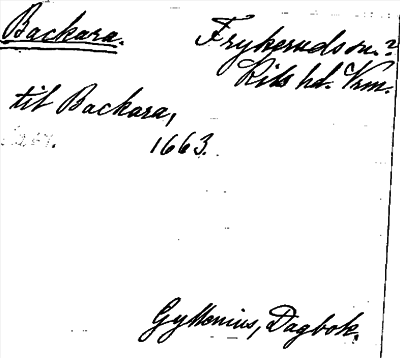 Backara.
Frykerudson.?
Kils hd. Vrm.
til Backara,
1663.
Gyllenius, Dagbok.